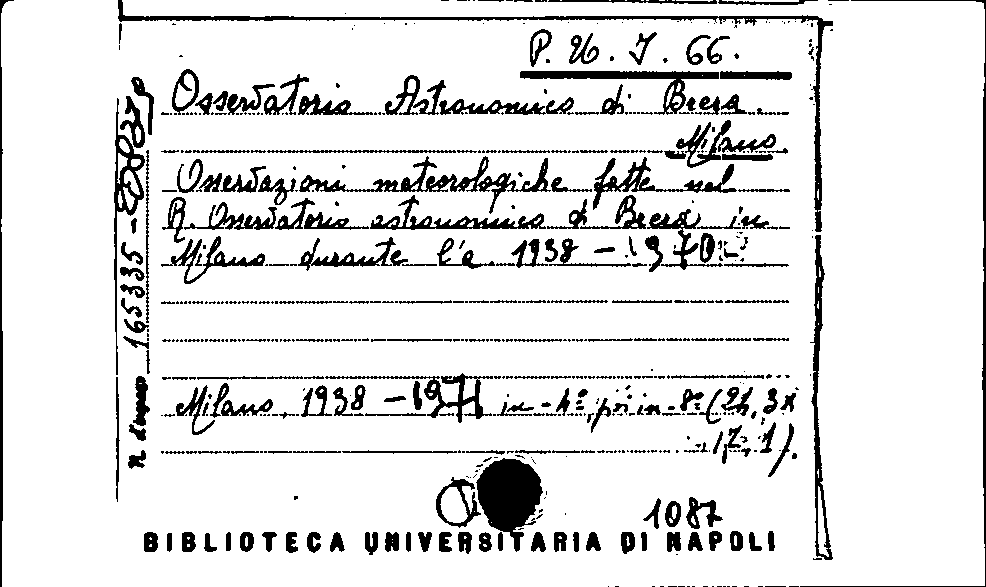 P. U. I. 66.
Osservatorio Astronomico di Brera.
Milano.
Osservazioni meteorologiche fatte nel
R. Osservatorio astronomico di Brera in
Milano durante l'a. 1938 - 1970
Milano, 1938 - 1971 in-4º, poi in-8º (24, 3x
17, 1).
n. d'ingresso 165335 -
1087
BIBLIOTECA UNIVERSITARIA DI NAPOLI